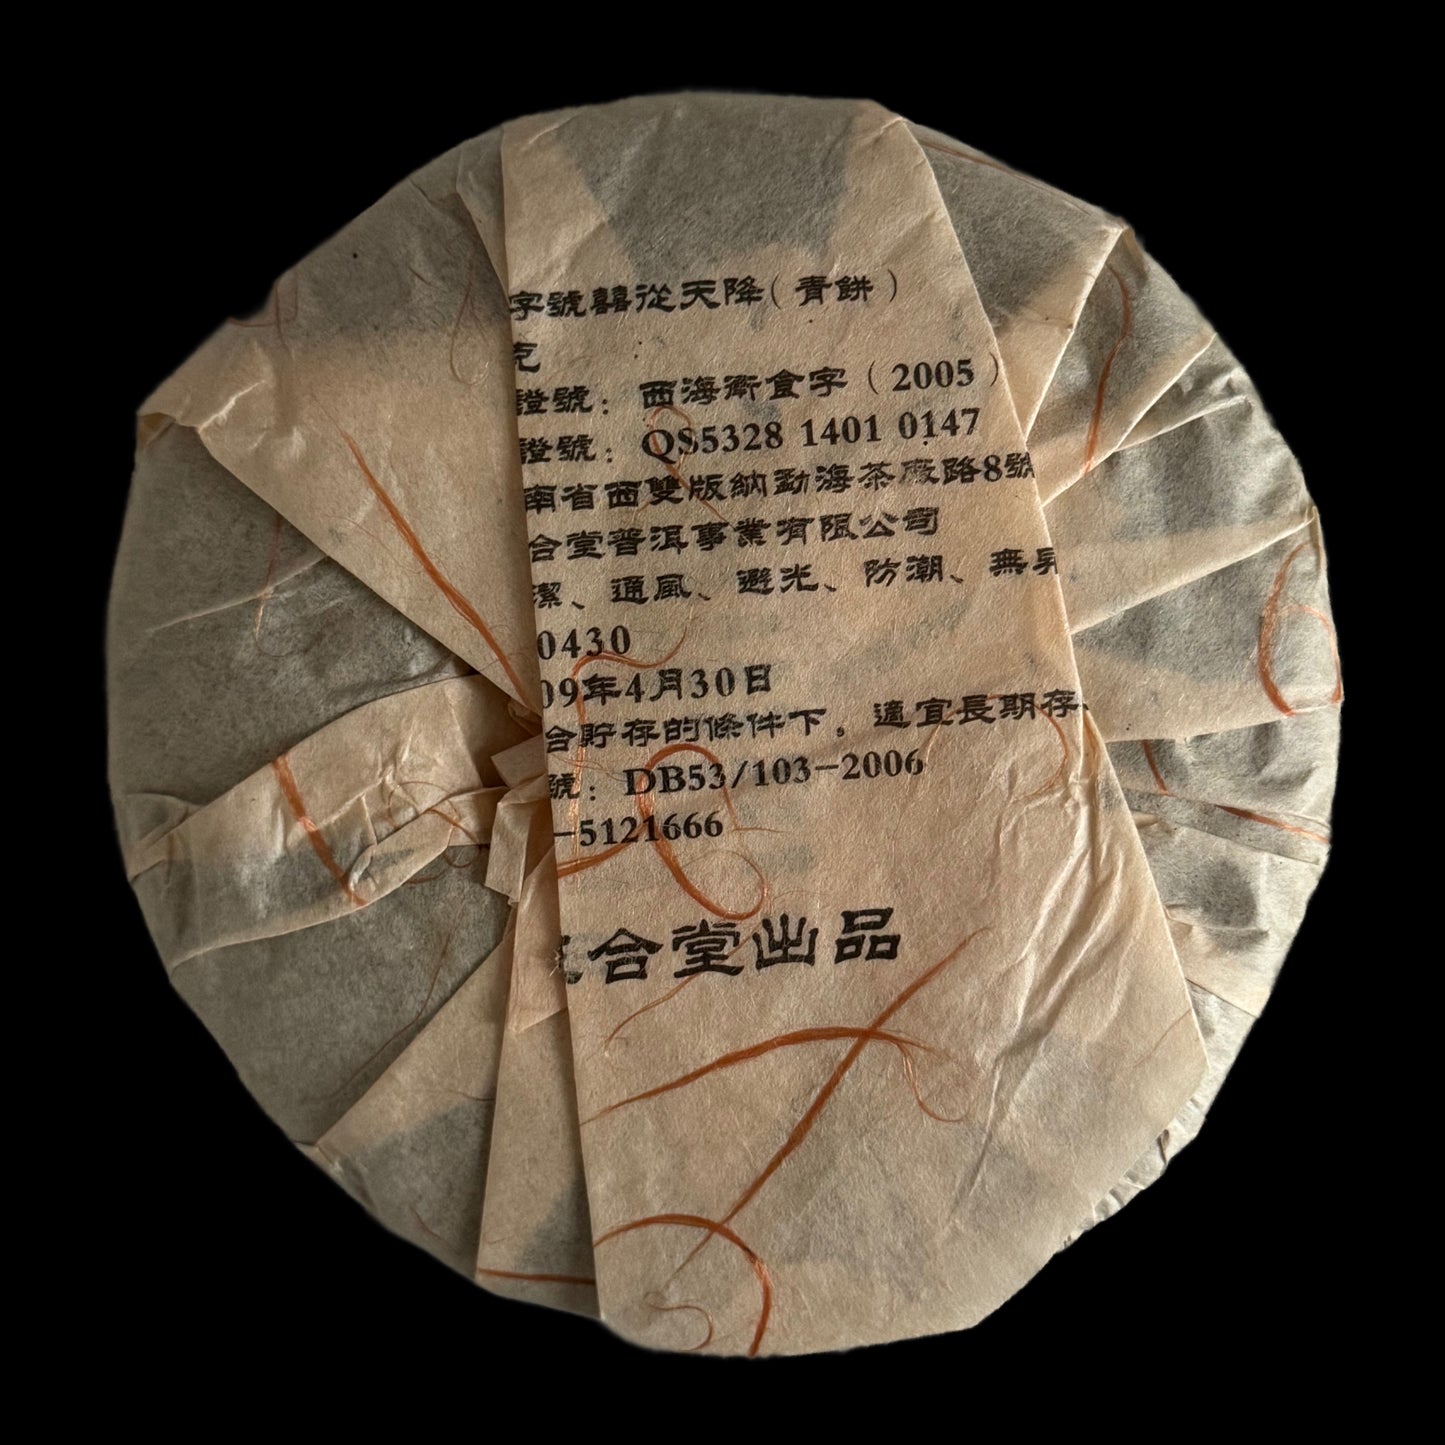 字號囍從天降（青餅）
克
證號：西海衛食字（2005）
證號：QS5328 1401 0147
南省西雙版納勐海茶廠路8號
合堂普洱事業有限公司
潔、通風、避光、防潮、無異
0430
09年4月30日
合貯存的條件下，適宜長期存
號：DB53/103-2006
-5121666
合堂出品